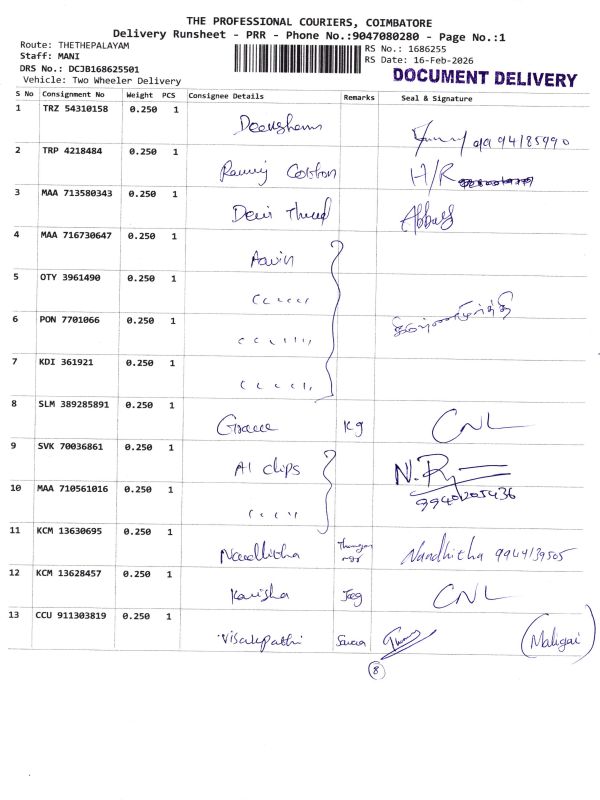 THE PROFESSIONAL COURIERS, COIMBATORE
Delivery Runsheet - PRR - Phone No.:9047080280 - Page No.:1
Route: THETHEPALAYAM
Staff: MANI
DRS No.: DCJB168625501
Vehicle: Two Wheeler Delivery
RS No.: 1686255
RS Date: 16-Feb-2026
DOCUMENT DELIVERY
S No Consignment No Weight PCS Consignee Details Remarks Seal & Signature
1 TRZ 54310158 0.250 1
2 TRP 4218484 0.250 1 H/R
3 MAA 713580343 0.250 1 Abbas
4 MAA 716730647 0.250 1 Aavin
5 OTY 3961490 0.250 1
6 PON 7701066 0.250 1
7 KDI 361921 0.250 1
8 SLM 389285891 0.250 1 Grace Kg CNL
9 SVK 70036861 0.250 1 AI clips
9940205436
10 MAA 710561016 0.250 1
11 KCM 13630695 0.250 1 Nandhitha Nandhitha 9944139505
12 KCM 13628457 0.250 1 Kavisha Jag CNL
13 CCU 911303819 0.250 1 Visalupathi (Maligai)
8